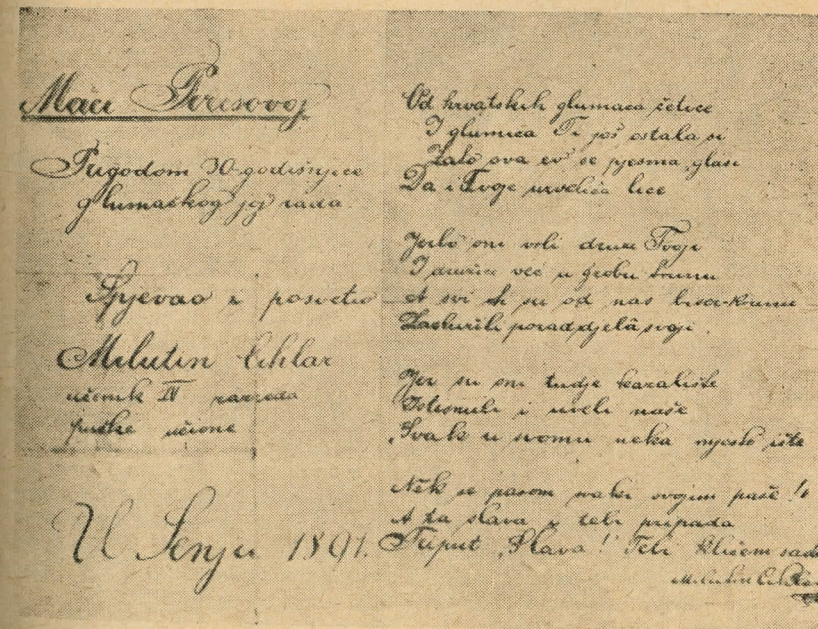 Maci Perisovoj
Prigodom 30-godišnjice
glumačkog joj rada.
Spjevao i posvetio
Milutin Cihlar
učenik IV razreda
pučke učione
U Senju 1891.
Od hrvatskih glumaca četice
I glumica Ti još ostala si
Zato ova ev' se pjesma glasi
Da i Tvoje urveliča lice
Jerbo oni vrli druzi Tvoji
I družice već u grobu trunu
A svi ti su od nas krunu
Zaslužili porad djelâ svoji.
Jer su oni tudje kazalište
Istisnuli i uveli naše
"Svak u svomu neka mjesto ište
Nek se pasom svaki svojim paše!"
A ta slava i tebi pripada
Triput "Slava!" Tebi kličem sad
Milutin Cihlar